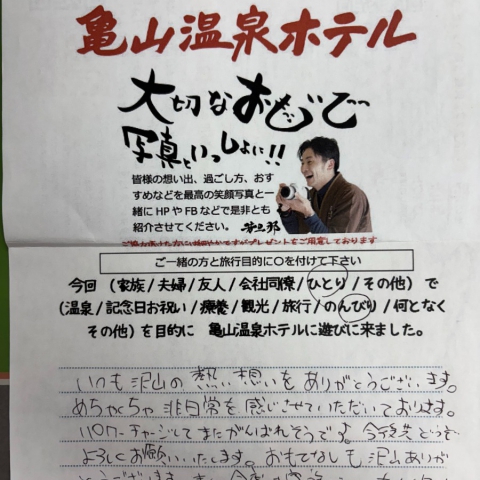 亀山温泉ホテル
大切なおもいで
写真といっしょに!!
皆様の想い出、過ごし方、おす
すめなどを最高の笑顔写真と一
緒に HP や FB などで是非とも
紹介させてください。
ご一緒の方と旅行目的に〇を付けて下さい
今回（家族 / 夫婦 / 友人 / 会社同僚 / ひとり / その他）で
（温泉 / 記念日お祝い / 療養 / 観光 / 旅行 / のんびり / 何となく
その他）を目的に 亀山温泉ホテルに遊びに来ました。
いつも沢山の熱い想いをありがとうございます。
めちゃくちゃ非日常を感じさせていただいております。
パワーチャージしてまたがんばれそうです♪ 今後共どうぞ
よろしくお願いいたします。おもてなしも沢山ありが
とうございます。